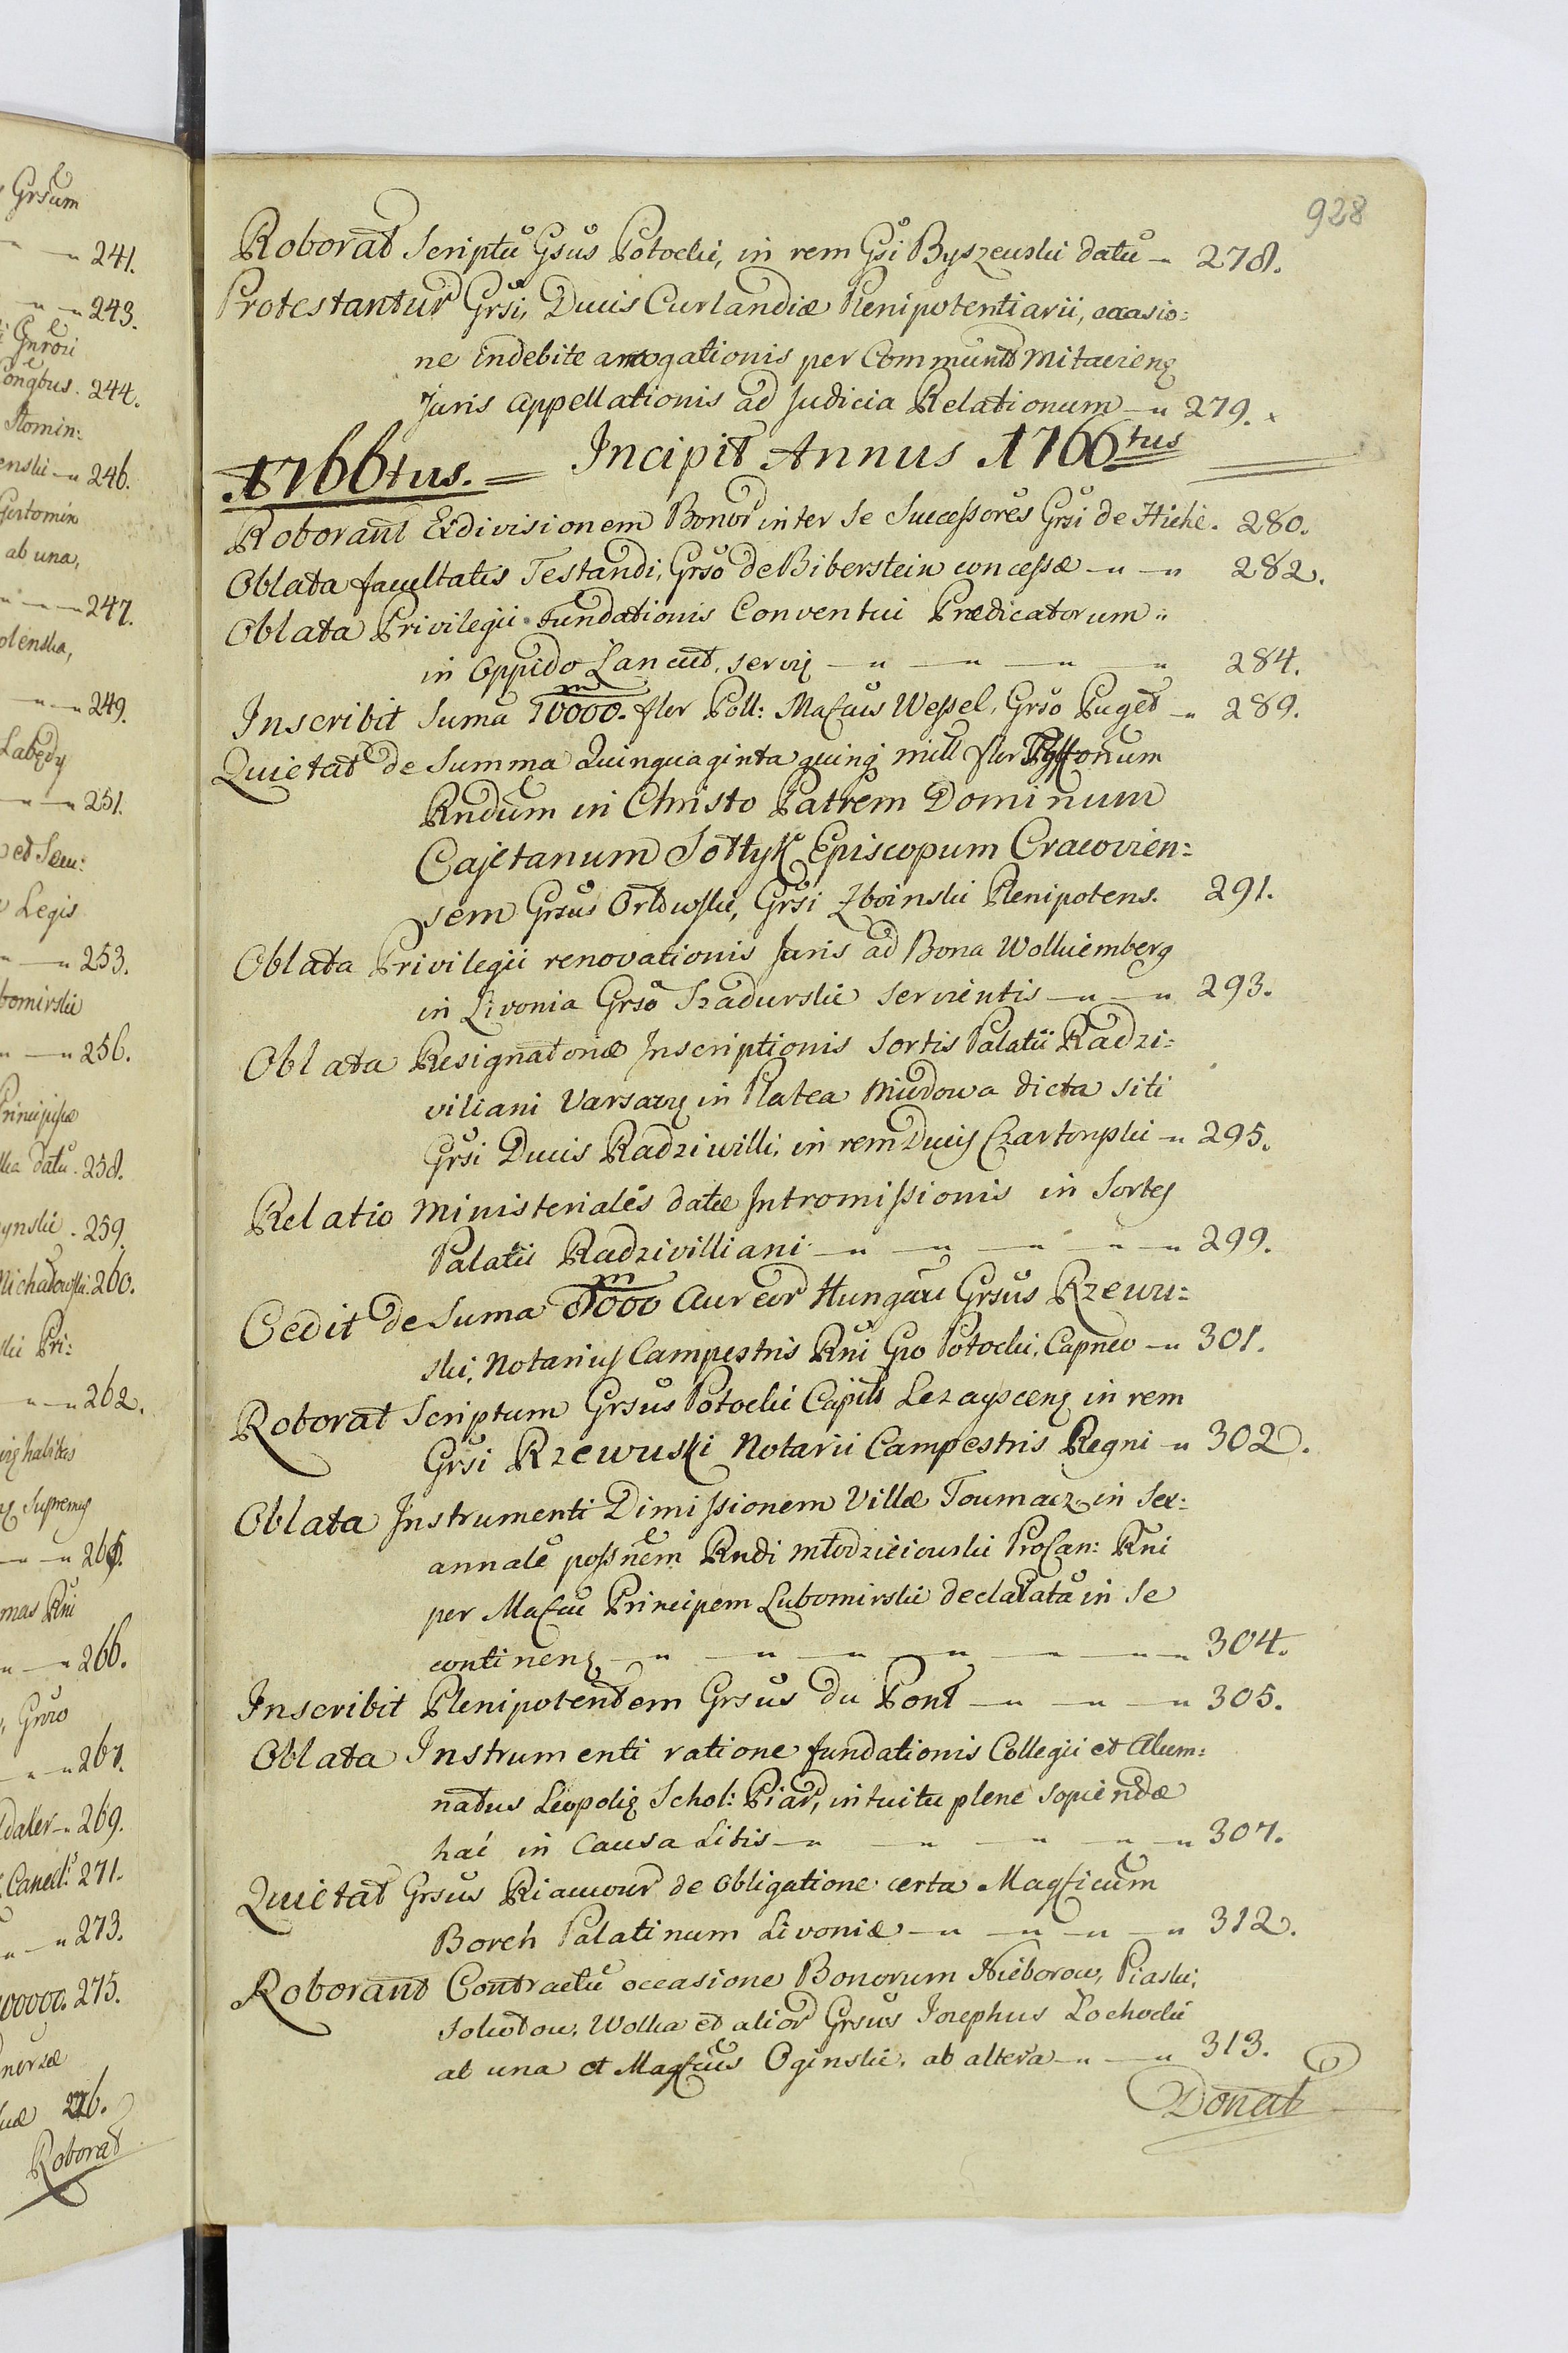 Grsum
241.
243.
Gnrosi
ongbus. 244.
Nomin:
enski 246.
Gertomin
ab una,
247.
olenska,
249.
Łabędy
251.
et Seu:
Legis
253.
bomirski
256.
Principisæ
ska datu. 258.
ynski. 259.
Michałowski. 260.
ski Pri:
262.
habitas
Supremus
265.
mas Rni
266.
Gnro
267.
daler 269.
Cancell: 271.
273.
100000. 275.
nersæ
suæ 276.
Roborat
928
Roborat Scriptũ Gsus Potocki, in rem Gsi Byszewski datũ 278.
Protestantur Grsi, Ducis Curlandiæ Plenipotentiarii, occasio:
ne indebite arrogationis per Communit Mitaviens
Juris Appellationis ad Judicia Relationum 279. x
1766tus. = Incipit Annus 1766.tus
Roborant Exdivisionem Bonor inter se Successores Grsi de Hiche. 280.
Oblata facultatis Testandi, Grso de Biberstein concessæ 282.
Oblata Privilegii Fundationis Conventui Prædicatorum
in Oppido Lancut, serviens 284.
Inscribit Suma 10000. flor Poll: Mafcus Wessel, Grso Puget 289.
Quietat de Summa Quinquaginta quinq mill flor Pollonum
Rndum in Christo Patrem Dominum
Cajetanum Sołtyk Episcopum Cracovien:
sem Grsus Orłowski, Grsi Zboinski Plenipotens. 291.
Oblata Privilegii renovationis Juris ad Bona Wolkiemberg
in Livonia Grso Szadurski servientis 293.
Oblata Resignatoriæ Inscriptionis Sortis Palatii Radzi:
viliani Varsaviæ in Platea Miodowa dicta siti
Grsi Ducis Radziwilli, in rem Ducis Czartoryski 295.
Relatio Ministerialẽs datæ Intromissionis in Sortes
Palatii Radzivilliani 299.
Cedit de Suma 8000 Aureor Hungar Grsus Rzewu:
ski, Notarius Campestris Rni Gro Potocki, Capneo 301.
Roborat Scriptum Grsus Potocki Capits Lezayscens in rem
Grsi Rzewuski Notarii Campestris Regni 302.
Oblata Instrumenti Dimissionem Villæ Toumacz in Sex:
annalẽ possnem Rndi Młodzieiowski ProCan: Rni
per Mafcũ Principem Lubomirski declaratã in se
continens 304.
Inscribit Plenipotentem Grsus du Pont 305.
Oblata Instrumenti ratione fundationis Collegii et Alum:
natus Leopolis Schol: Piar, intuitu plene sopiendæ
hac in Causa Litis 307.
Quietat Grsus Riaucour de Obligatione certa Magficum
Borch Palatinum Livoniæ 312.
Roborant Contractũ occasione Bonorum Nieborow, Piaski,
Sokołow, Wolka et alior Grsus Josephus Łochocki
ab una et Magfcus Oginski, ab altera 313.
Donat